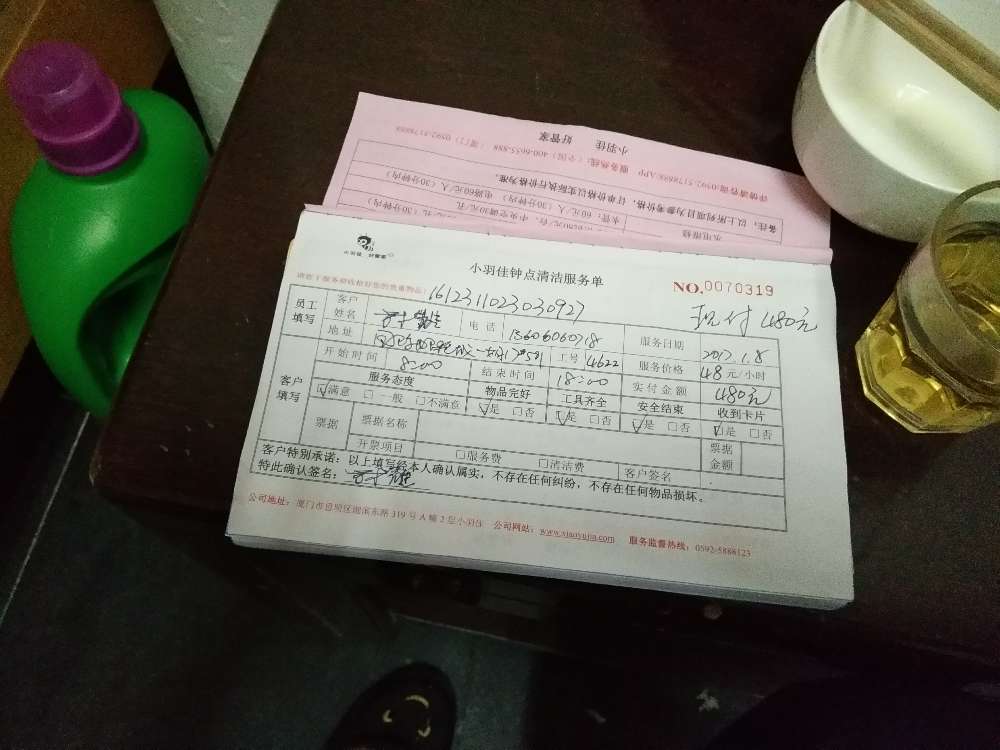 小羽佳 好管家
服务热线：（全国）400-6655-888 （厦门）0592-5178888
详情请咨询:0592-5178888/APP
备注：以上所列项目为参考价格，订单价格以实际执行价格为准。
水管：60元/人（30分钟内） 电路60元/人（30分钟内）
水电维修
小羽佳 好管家
小羽佳钟点清洁服务单
NO.0070319
1612311023030927
现付480元
员工填写 客户姓名 电话 13606060718 服务日期 2017.1.8
地址 工号 4622 服务价格 48元/小时
客户填写 开始时间 8:00 结束时间 18:00 实付金额 480元
服务态度 物品完好 工具齐全 安全结束 收到卡片
☑满意 □一般 □不满意 ☑是 □否 ☑是 □否 ☑是 □否 ☑是 □否
票据 票据名称 票据金额
开票项目 □服务费 □清洁费 客户签名
客户特别承诺：以上填写经本人确认属实，不存在任何纠纷，不存在任何物品损坏。
特此确认签名：
公司地址：厦门市思明区湖滨东路319号A幢2层小羽佳 公司网站：www.xiaoyujia.com 服务监督热线：0592-5886123